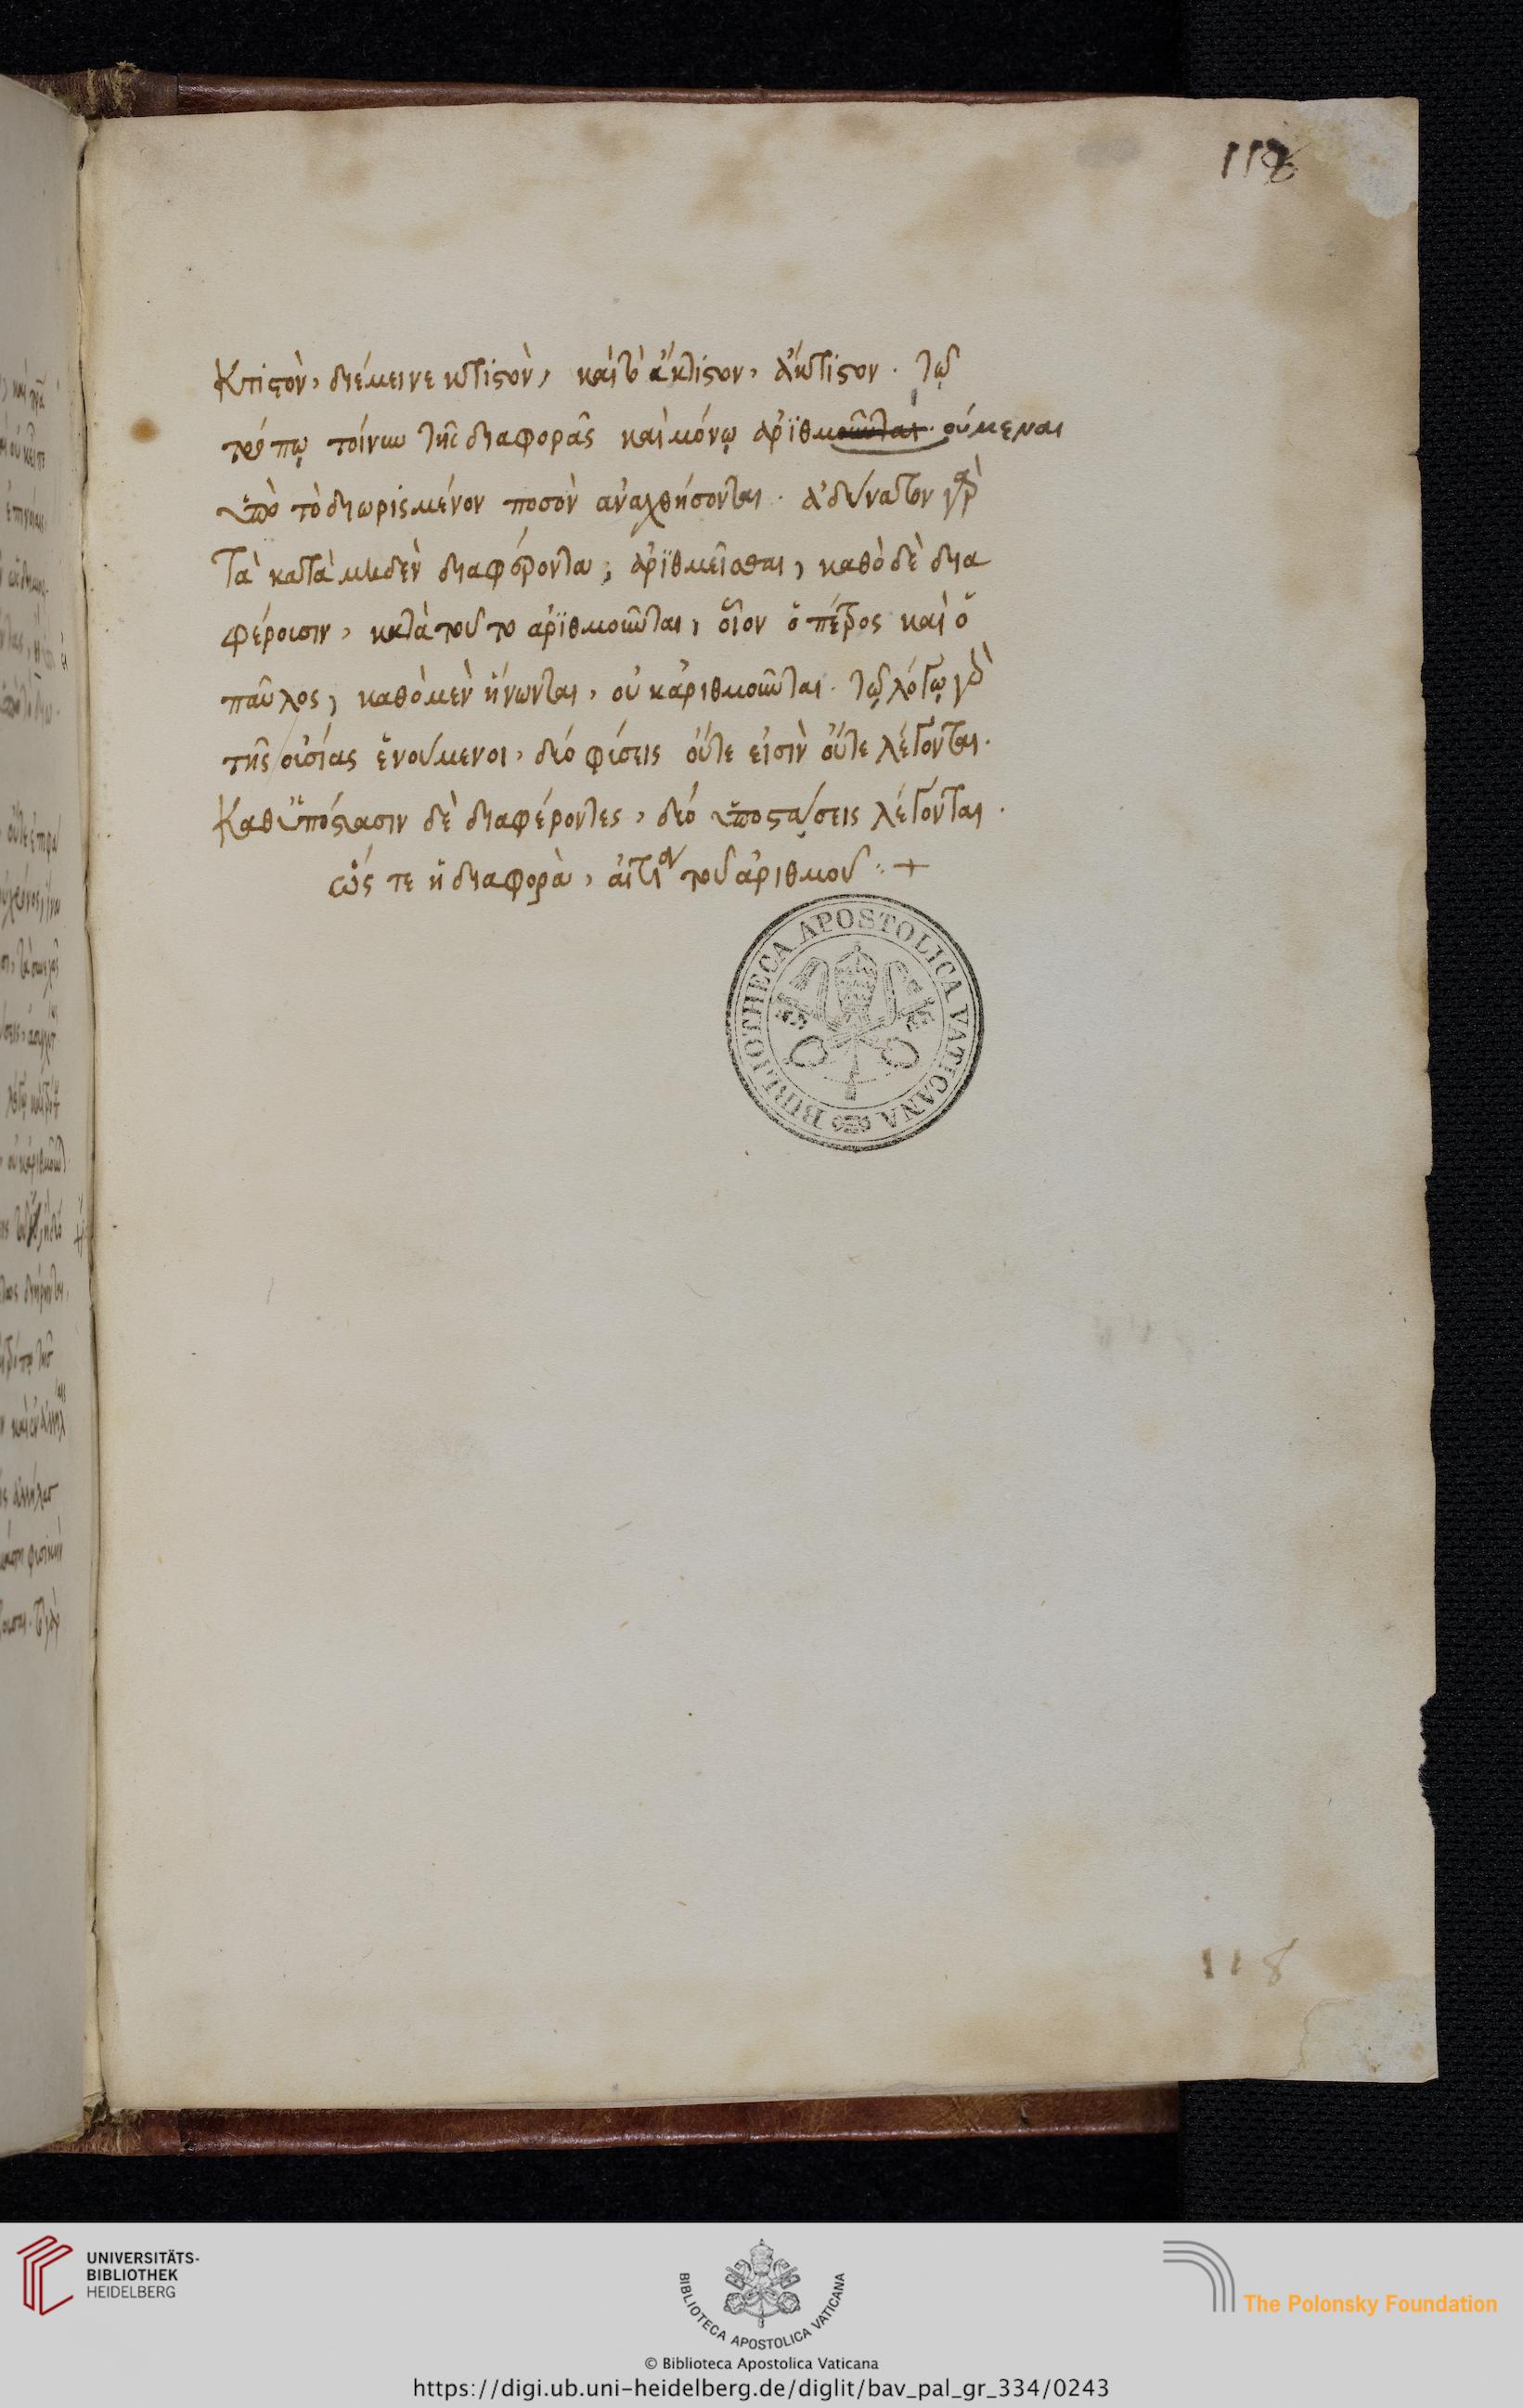 118
Κτιστὸν, διέμεινε κτιστὸν, καὶ τὸ ἄκτιστον, ἄκτιστον. τῷ
τρόπῳ τοίνυν τῆς διαφορᾶς καὶ μόνῳ ἀριθμοῦνται ούμεναι
ὑπὸ τὸ διωρισμένον ποσὸν ἀναχθήσονται. ἀδύνατον γὰρ
Τὰ κατὰ μηδὲν διαφέροντα, ἀριθμεῖσθαι, καθὸ δὲ δια
φέρουσιν, κατὰ τοῦτο ἀριθμοῦνται, οἷον ὁ πέτρος καὶ ὁ
παῦλος, καθὸ μὲν ἥνωνται, οὐκ ἀριθμοῦνται. τῷ λόγῳ γὰρ
τῆς οὐσίας ἑνούμενοι, δύο φύσεις οὔτε εἰσὶν οὔτε λέγονται.
Καθ ὑπόστασιν δὲ διαφέροντες, δύο ὑποστάσεις λέγονται.
ὥστε ἡ διαφορὰ, αἴτιον τοῦ ἀριθμοῦ +
BIBLIOTHECA APOSTOLICA VATICANA
118
UNIVERSITÄTS-
BIBLIOTHEK
HEIDELBERG
BIBLIOTECA APOSTOLICA VATICANA
The Polonsky Foundation
© Biblioteca Apostolica Vaticana
https://digi.ub.uni-heidelberg.de/diglit/bav_pal_gr_334/0243